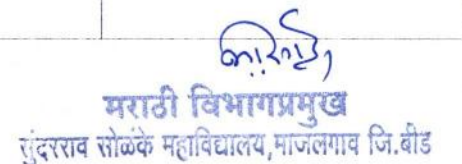 मराठी विभागप्रमुख
सुंदरराव सोळंके महाविद्यालय,माजलगाव जि.बीड